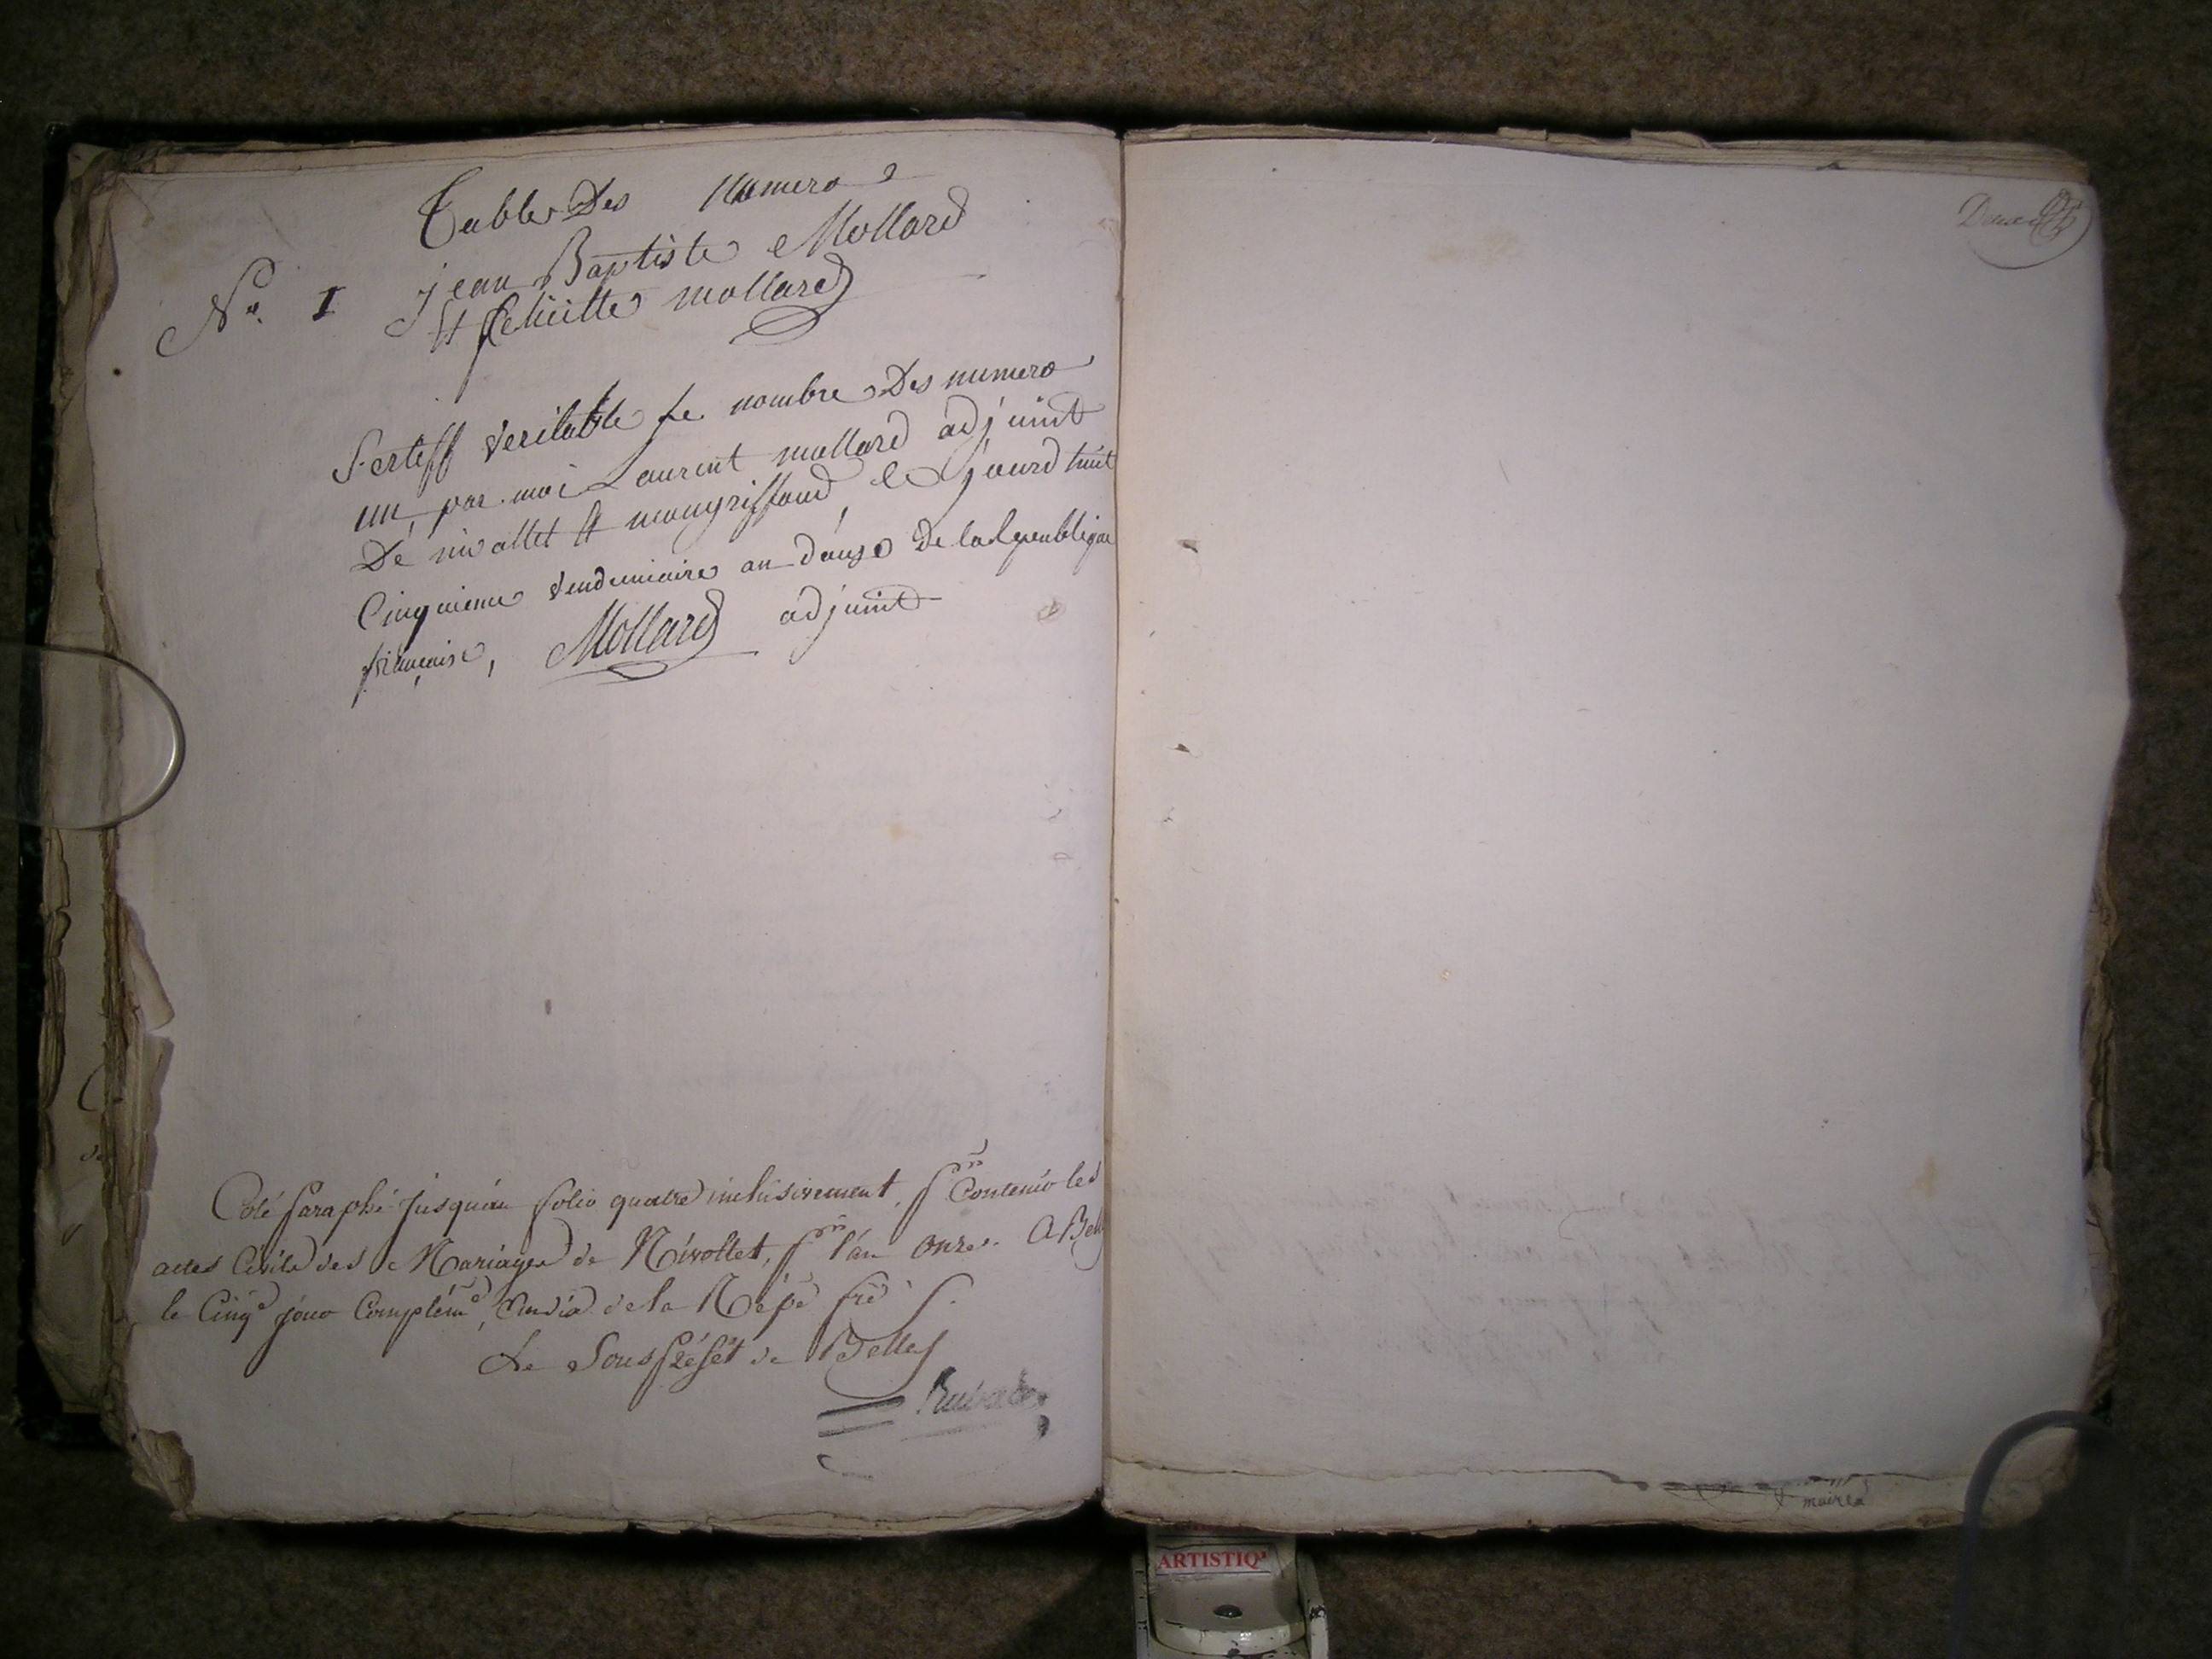 Table Des Numero
No. 1 jean Baptiste Mollard
Et felicitte mollard
Sertiff veritable Le nombre Des numero
un, par moi Laurent mollard adjuint
De nivollet Et mongriffond, Ce jourd huit
Cinquieme vendemiaire an douze De la Republique
française, Mollard adjuint
Coté paraphé jusqu'au folio quatre inclusivement, pr Contenir les
actes Civils des Mariages de Nivollet, pr l'an onze. A Belley
le Cinqe jour Complémre, an dix de la Répe frse
Le Sous préfet de Belley
maires
ARTISTIQ